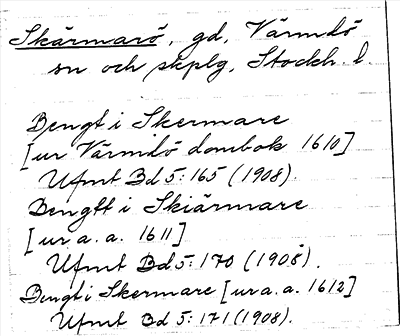 Skärmarö, gd, Värmdö
sn och skplg, Stockh. l.
Bengt i Skermare
[ur Värmdö dombok 1610]
Ufmt Bd 5:165 (1908).
Bengtt i Skiärmare
[ur a. a. 1611]
Ufmt Bd 5:170 (1908).
Bengt i Skermare [ur a. a. 1612]
Ufmt Bd 5:171 (1908).